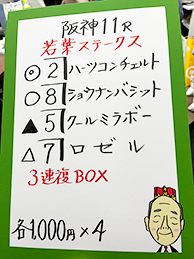 阪神11R
若葉ステークス
◎2ハーツコンチェルト
○8ショウナンバシット
▲5クールミラボー
△7ロゼル
3連複BOX
各1,000円×4